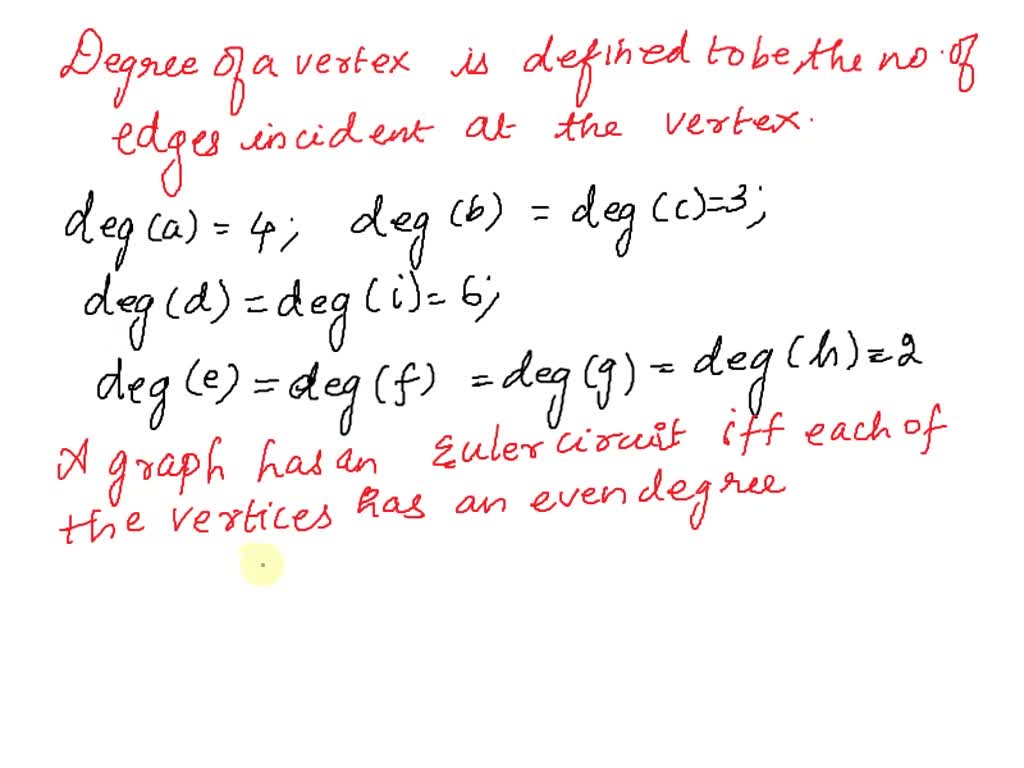 Degree of a vertex is defined to be, the no. of
edges incident at the vertex.
deg(a) = 4; deg(b) = deg(c)=3;
deg(d) = deg(i) = 6;
deg(e) = deg(f) = deg(g) = deg(h) = 2
A graph has an Euler circuit iff each of
the vertices has an even degree